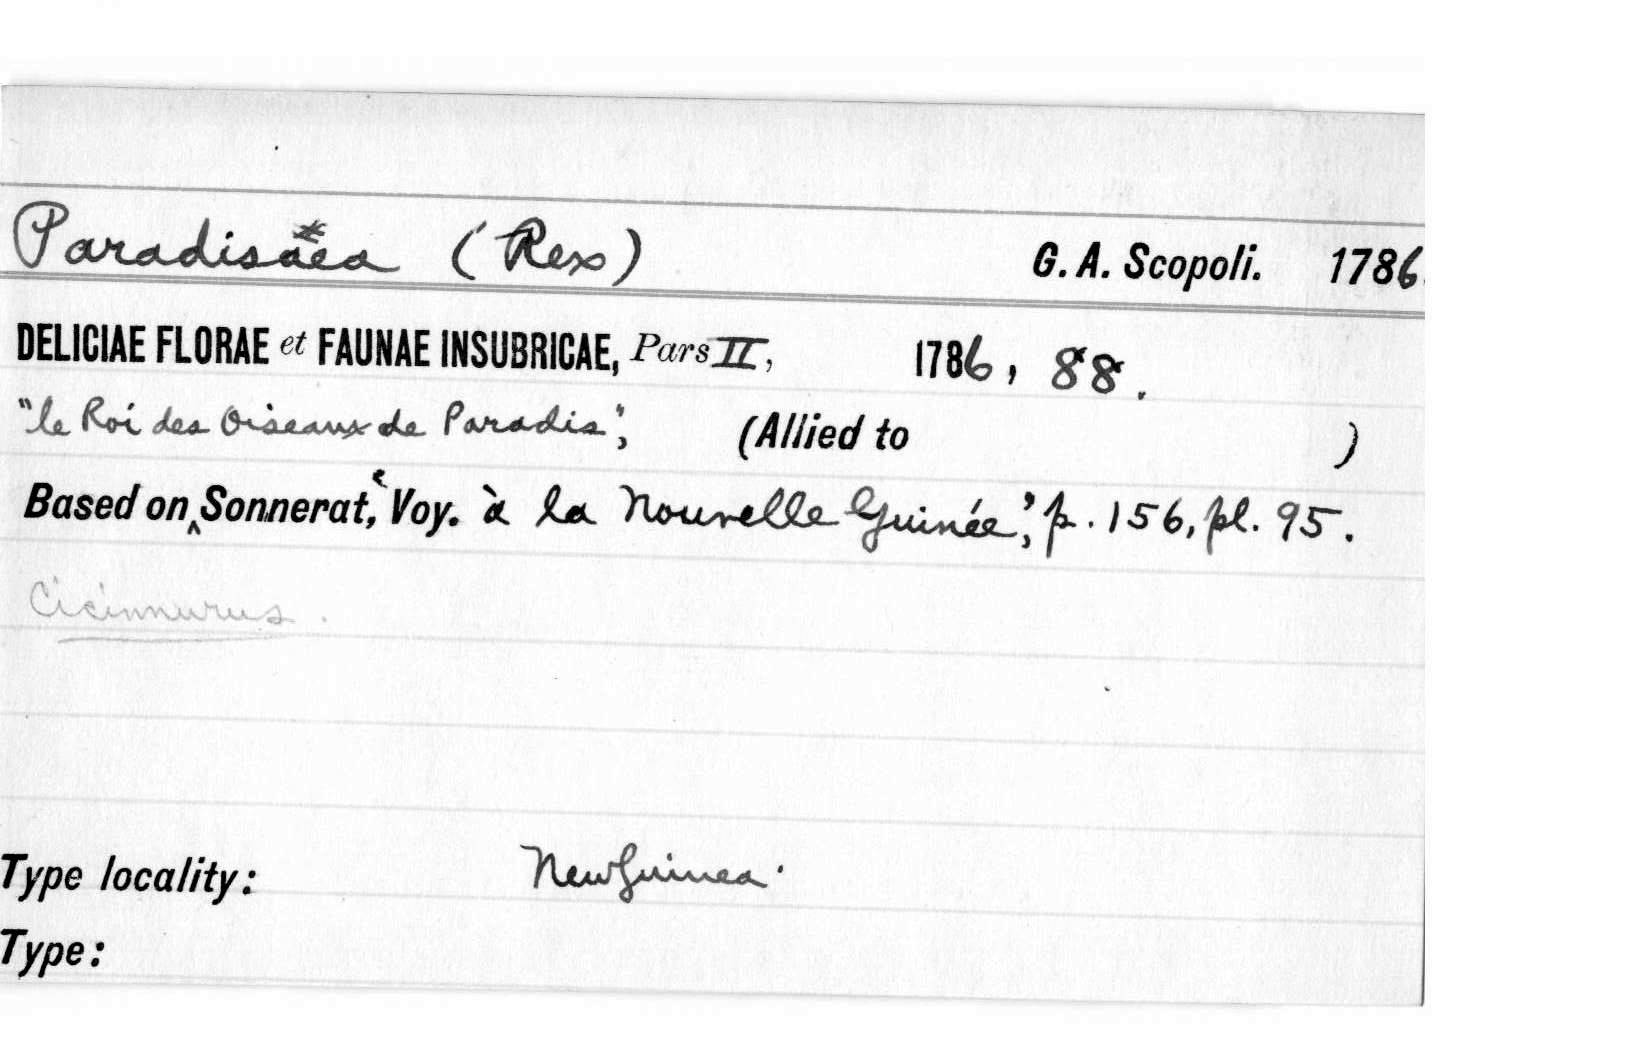 Paradisaea (Rex) G. A. Scopoli. 1786.
DELICIAE FLORAE et FAUNAE INSUBRICAE, Pars II, 1786, 88.
"le Roi des Oiseaux de Paradis", (Allied to )
Based on Sonnerat, "Voy. à la Nouvelle Guinée", p. 156, pl. 95.
Cicinnurus.
Type locality: New Guinea.
Type: